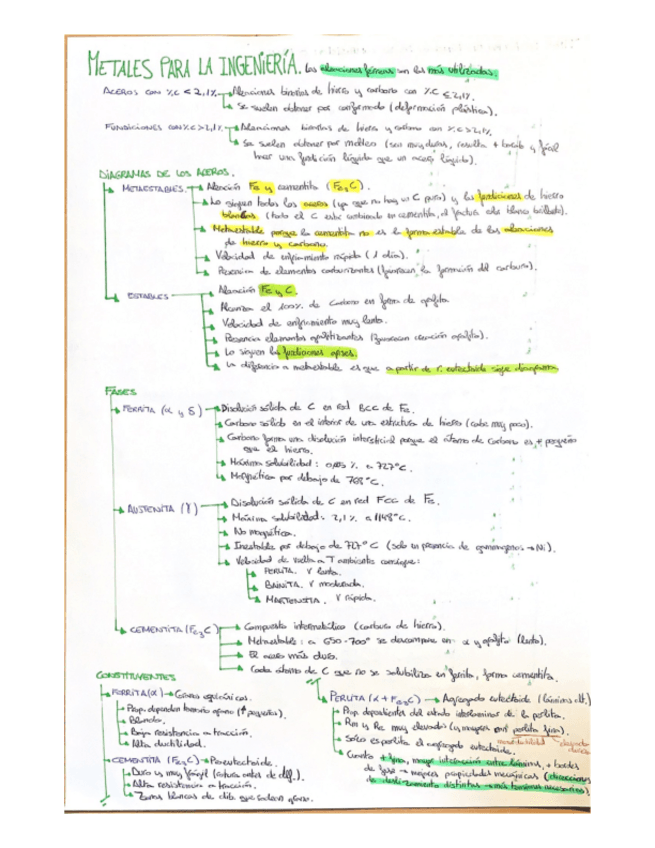 METALES PARA LA INGENIERÍA. Las aleaciones férreas son las más utilizadas.
ACEROS CON %C ≤ 2,1% → Aleaciones binarias de hierro y carbono con %C ≤ 2,1%.
Se suelen obtener por conformado (deformación plástica).
FUNDICIONES CON %C > 2,1% → Aleaciones binarias de hierro y carbono con %C > 2,1%.
Se suelen obtener por moldeo (son muy duras, resulta + barato y fácil
hacer una fundición líquida que un acero líquido).
DIAGRAMAS DE LOS ACEROS.
METAESTABLES → Aleación Fe y cementita (Fe3C).
Lo siguen todos los aceros (ya que no hay C puro) y las fundiciones de hierro
blancas (todo el C está combinado en cementita, fractura blanco brillante).
Metaestable porque la cementita no es la forma estable de las aleaciones
de hierro y carbono.
Velocidad de enfriamiento rápida (1 día).
Presencia de elementos carburizantes (favorecen la formación del carburo).
ESTABLES → Aleación Fe y C.
Alcanza el 100% de Carbono en forma de grafito.
Velocidad de enfriamiento muy lenta.
Presencia elementos grafitizantes (favorecen creación grafito).
Lo siguen las fundiciones grises.
La diferencia a metaestable es que a partir de r. eutectoide sigue diagrama
FASES
FERRITA (α y δ) → Disolución sólida de C en red BCC de Fe.
Carbono sólido en el interior de una estructura de hierro (cabe muy poco).
Carbono forma una disolución intersticial porque el átomo de carbono es + pequeño
que el hierro.
Máxima solubilidad: % a 727°C.
Magnética por debajo de 768°C.
AUSTENITA (γ) → Disolución sólida de C en red FCC de Fe.
Máxima solubilidad: 2,1% a 1148°C.
No magnética.
Inestable por debajo de 727°C (salvo en presencia de gammagenos → Ni).
Velocidad de vuelta a T ambiente consigue:
PERLITA. V lenta.
BAINITA. V moderada.
MARTENSITA. V rápida.
CEMENTITA (Fe3C) → Compuesto intermetálico (carburo de hierro).
Metaestable: a 650-700° se descompone en α y grafito (lento).
El acero más duro.
Cada átomo de C que no se solubiliza en ferrita, forma cementita.
CONSTITUYENTES
FERRITA (α) → Granos equiáxicos.
Prop. dependen tamaño grano (↑ pequeños).
Blanda.
Baja resistencia a tracción.
Alta ductilidad.
CEMENTITA (Fe3C) → Proeutectoide.
Duro y muy frágil (rotura antes de def.).
Alta resistencia a tracción.
Zonas blancas de que rodean grano.
PERLITA (α + Fe3C) → Agregado eutectoide (láminas alt.)
Prop. dependientes del estado interlaminar de la perlita.
Rm y Re muy elevados (y mayores con perlita fina).
Solo es perlita el agregado eutectoide.
Cuanto + fina, mayor interacción entre láminas, + bordes
de fase → mejores propiedades mecánicas (direcciones
de deslizamiento distintas → más tensiones necesarias)